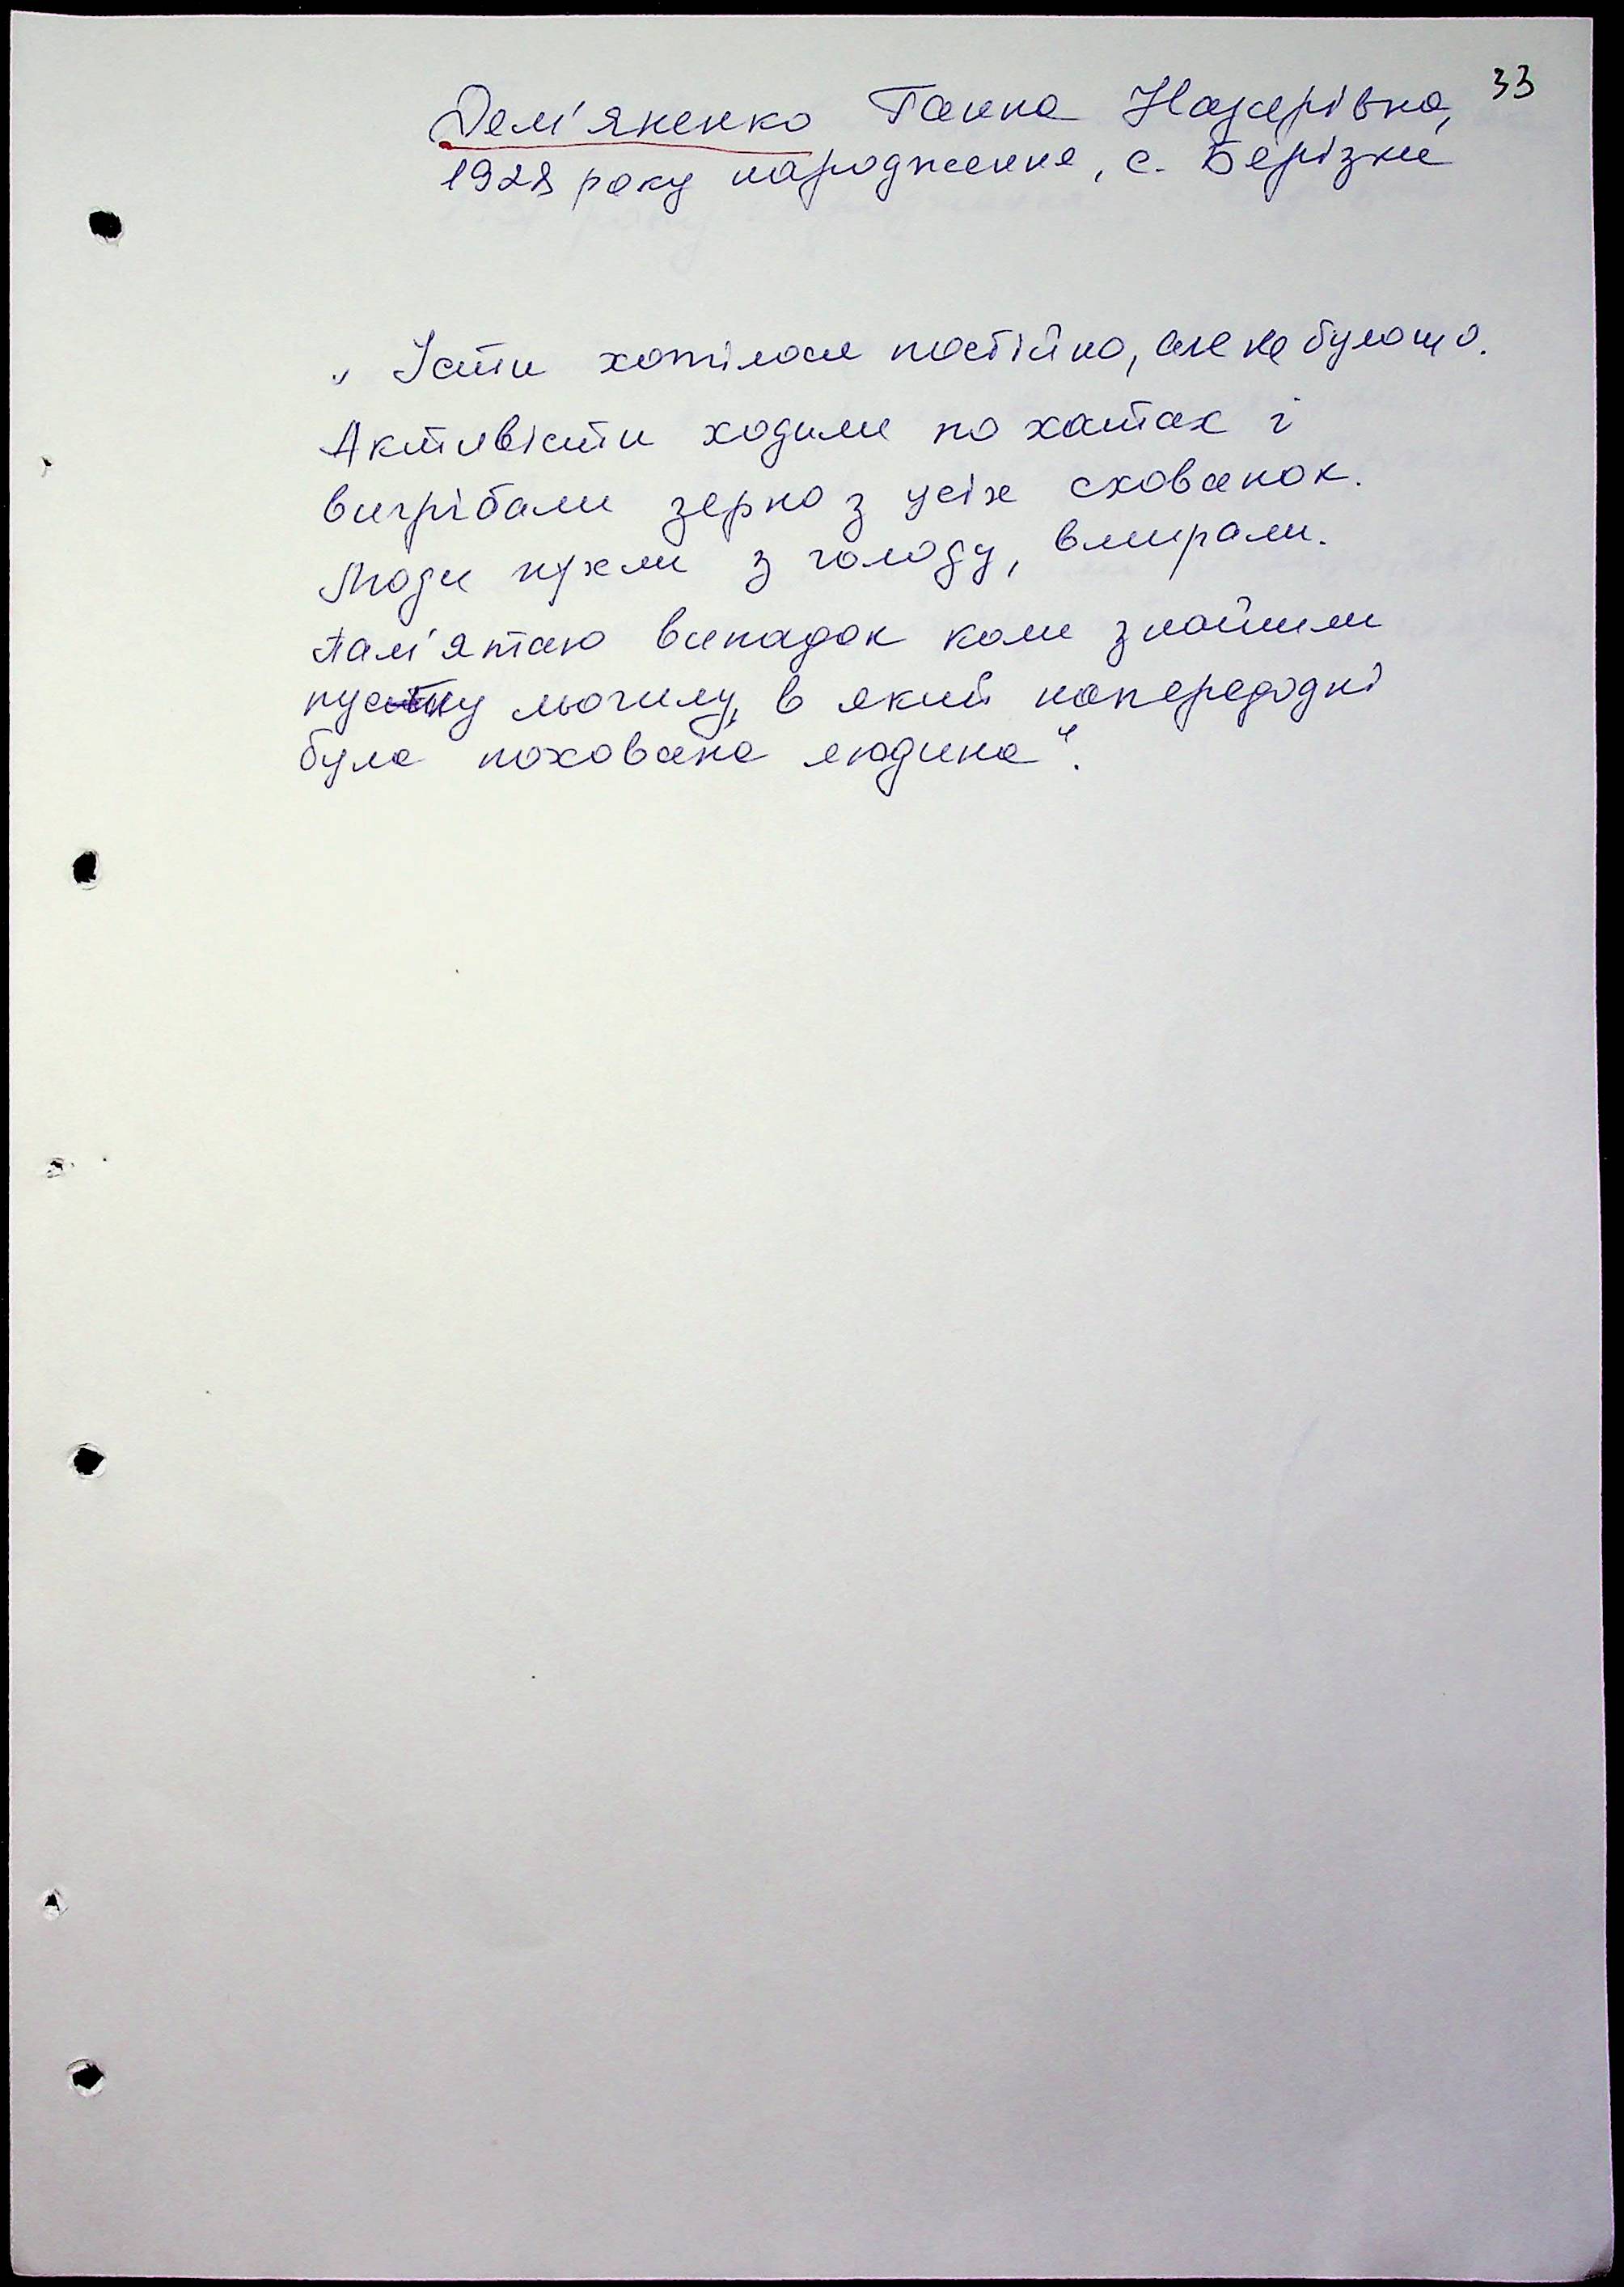 33
Дем'яненко Ганна Назарівна,
1928 року народження, с. Берізки
„Їсти хотілося постійно, але не було що.
Активісти ходили по хатах і
вигрібали зерно з усіх схованок.
Люди пухли з голоду, вмирали.
Пам'ятаю випадок коли знайшли
пусту могилу, в який напередодні
була похована людина“.